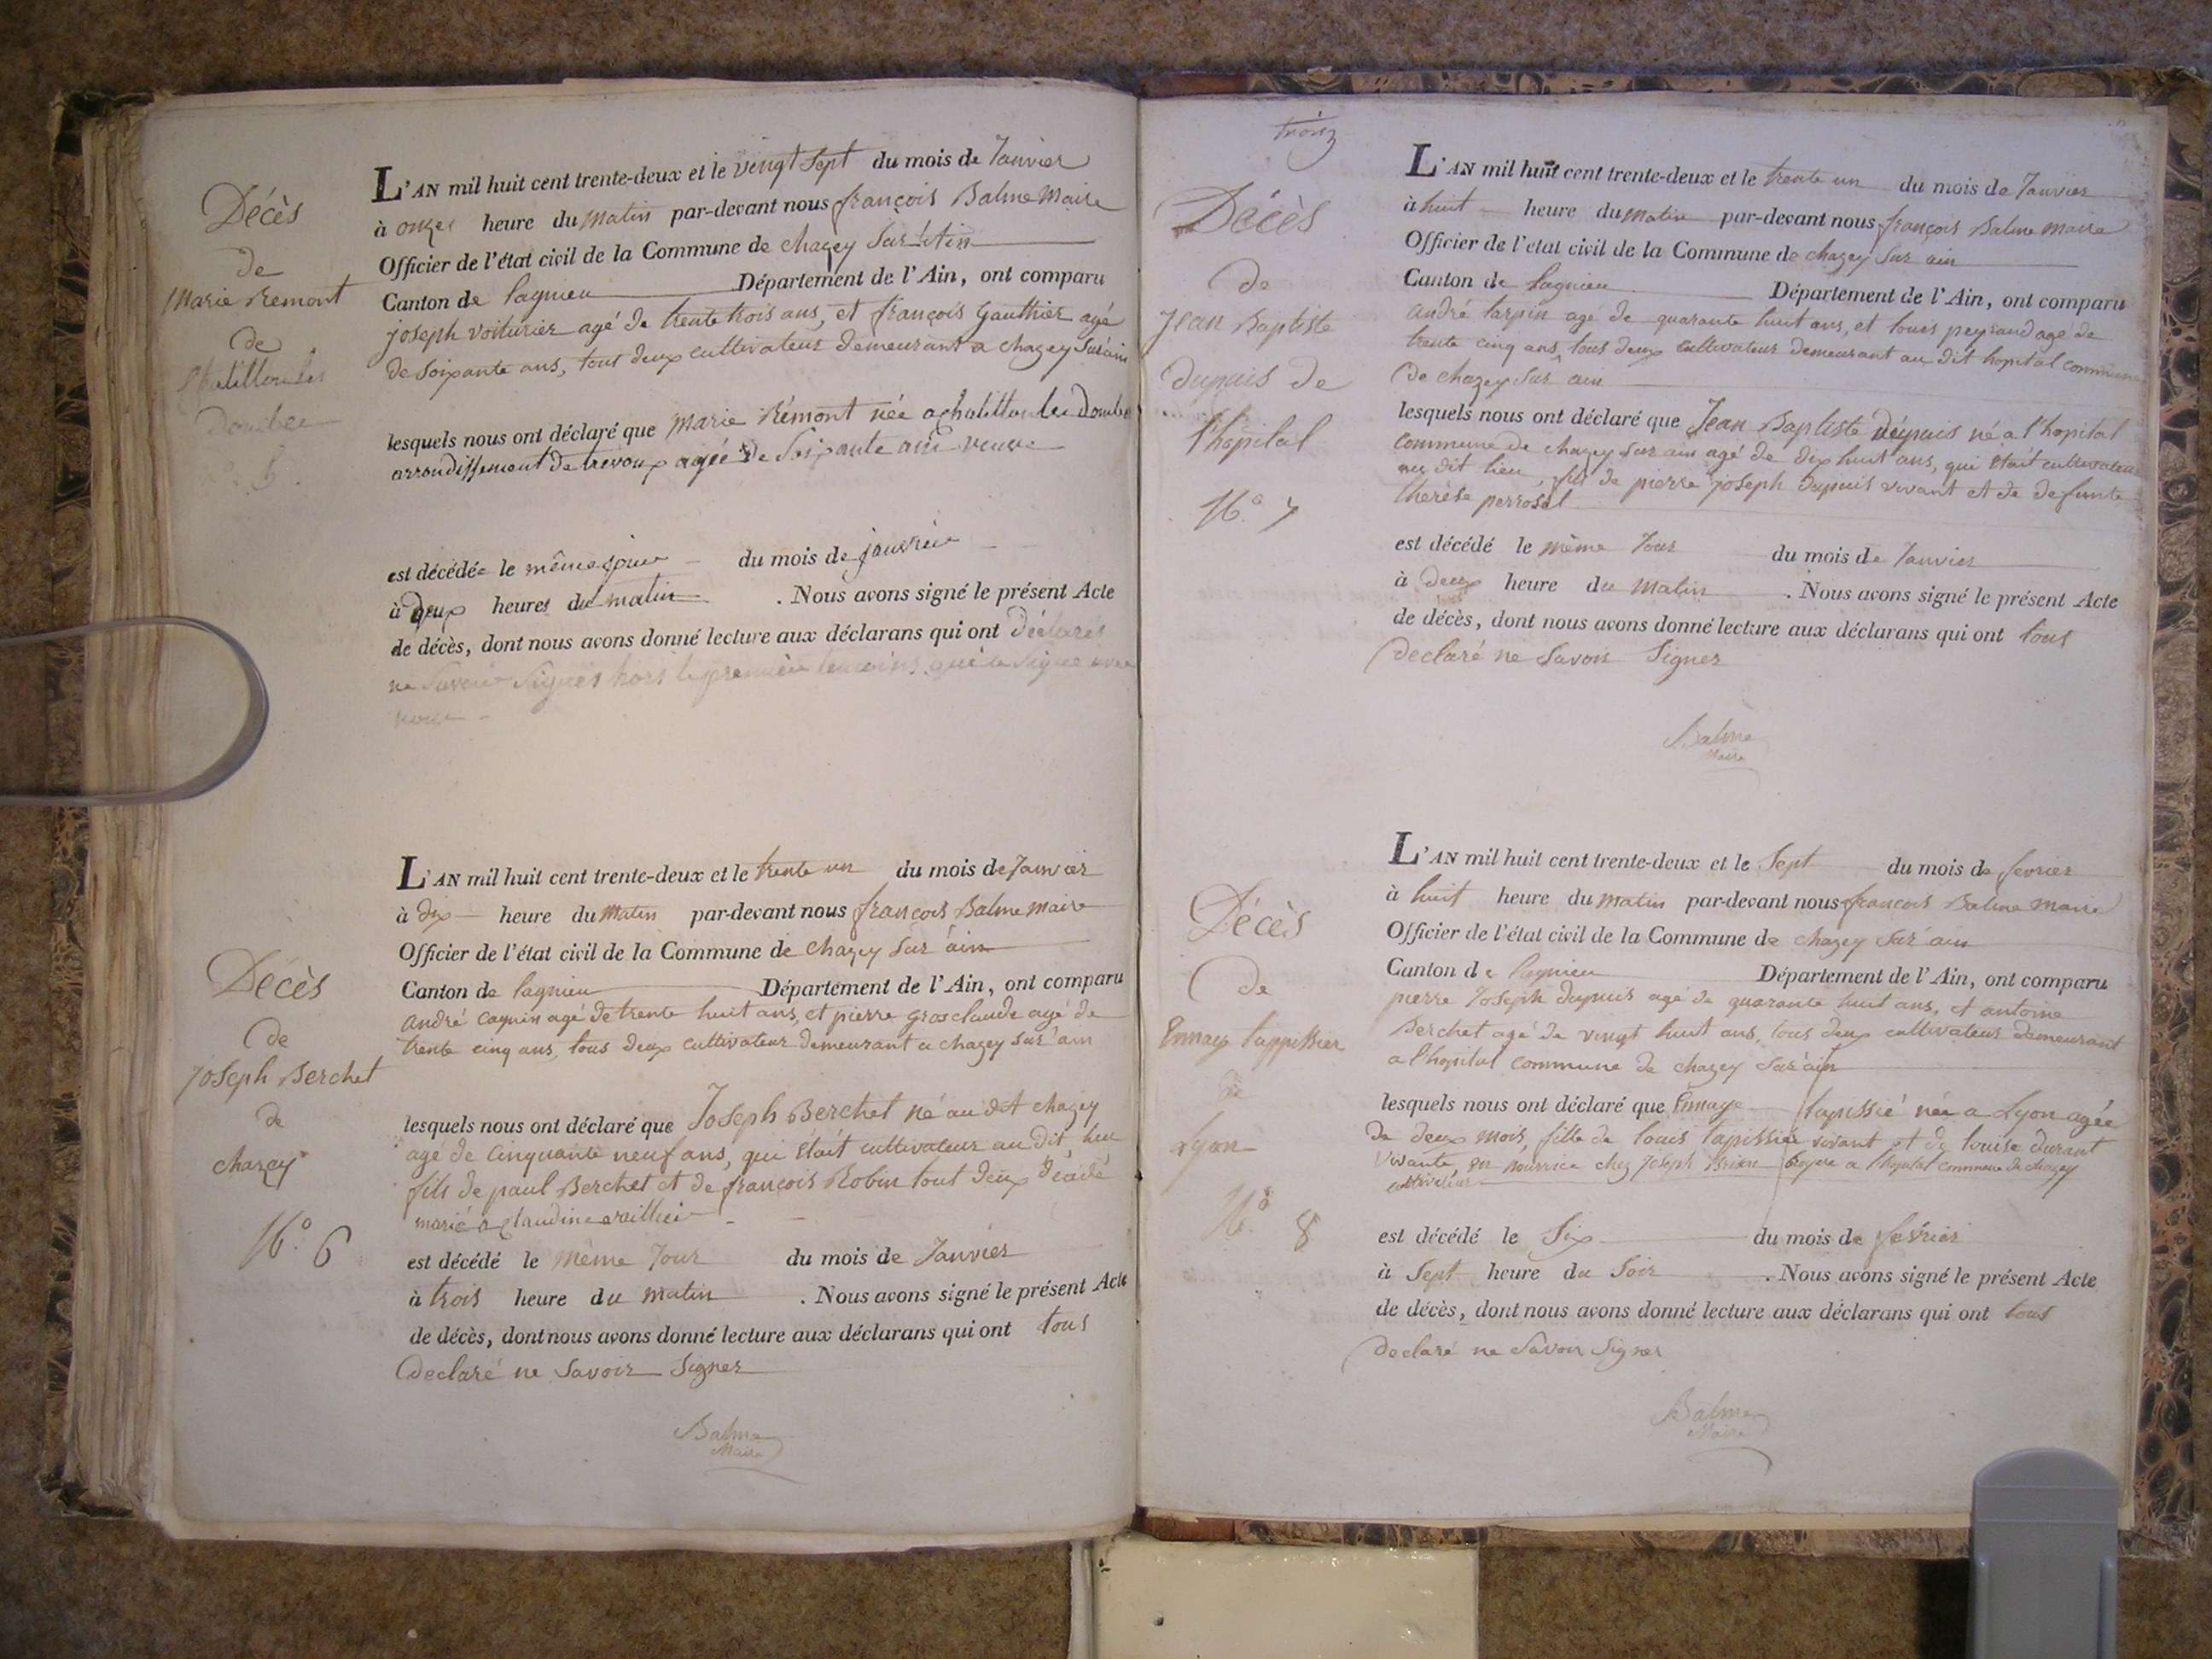 Décès
de
Marie Remont
de
Dombes
5.
L'AN mil huit cent trente-deux et le vingt Sept du mois de Janvier
à onzes heure du matin par-devant nous françois Balme Maire
Officier de l'état civil de la Commune de chazey Sur
Canton de lagnieu Département de l'Ain, ont comparu
joseph voiturier agé de trente trois ans, et françois Gauthier agé
de soixante ans, tous deux cultivateur demeurant a chazey Sur ain
lesquels nous ont déclaré que Marie Rémont née a
arrondissement de trevoux agée de Soixante ans veuve
est décédée le même jour du mois de
à deux heures du matin . Nous avons signé le présent Acte
de décès, dont nous avons donné lecture aux déclarans qui ont Déclarés
ne Savoir Signer hors le premier temoins qui a Signé avec
nous
Décès
de
Joseph Berchet
de
chazey
N.° 6
L'AN mil huit cent trente-deux et le trente un du mois de Janvier
à dix heure du matin par-devant nous françois Balme maire
Officier de l'état civil de la Commune de chazey Sur ain
Canton de lagnieu Département de l'Ain, ont comparu
andré agé de trente huit ans, et pierre grosclaude agé de
trente cinq ans, tous deux cultivateur demeurant a chazey sur ain
lesquels nous ont déclaré que Joseph Berchet né au dit chazey
agé de Cinquante neuf ans, qui était cultivateur au dit lieu
fils de paul Berchet et de françois Robin tout deux
marié a claudine
est décédé le même Jour du mois de Janvier
à trois heure du matin . Nous avons signé le présent Acte
de décès, dont nous avons donné lecture aux déclarans qui ont tous
declaré ne Savoir Signer
Balme
Maire
trois
Décès
de
Jean Baptiste
dupuis de
l'hôpital
N.° 7
L'AN mil huit cent trente-deux et le trente un du mois de Janvier
à huit heure du matin par-devant nous françois Balme maire
Officier de l'état civil de la Commune de chazey Sur ain
Canton de lagnieu Département de l'Ain, ont comparu
andré tarpin agé de quarante huit ans, et louis peyraud agé de
trente cinq ans, tous deux cultivateur demeurant au dit hopital commune
de chazey Sur ain
lesquels nous ont déclaré que Jean Baptiste Dupuis né a l'hopital
commune de chazey Sur ain agé de dix huit ans, qui était cultivateur
au dit lieu, fils de pierre joseph dupuis vivant et de defunte
thérèse
est décédé le même Jour du mois de Janvier
à deux heure du matin . Nous avons signé le présent Acte
de décès, dont nous avons donné lecture aux déclarans qui ont tous
declaré ne Savoir Signer
Balme
Maire
Décès
de
Ennay tappissier
de
Lyon
N.° 8
L'AN mil huit cent trente-deux et le Sept du mois de fevrier
à huit heure du matin par-devant nous francois Balme maire
Officier de l'état civil de la Commune de chazey sur ain
Canton de lagnieu Département de l'Ain, ont comparu
pierre Joseph dupuis agé de quarante huit ans, et antoine
Berchet agé de vingt huit ans, tous deux cultivateur demeurant
a l'hopital commune de chazey Sur ain
lesquels nous ont déclaré que Ennay tapissié née a Lyon agée
de deux mois, fille de louis tapissié vivant et de louise durant
vivante, en nourrice chez joseph a l'hopital commune de chazey
cultivateur
est décédé le Six du mois de fevrier
à Sept heure du Soir . Nous avons signé le présent Acte
de décès, dont nous avons donné lecture aux déclarans qui ont tous
declaré ne Savoir Signer
Balme
Maire